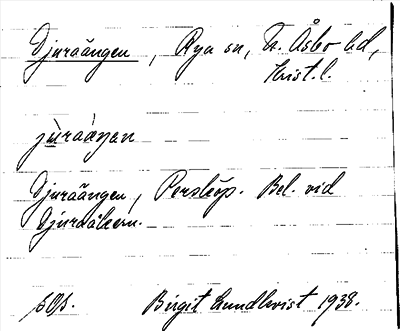 Djuraängen, Rya sn, N. Åsbo hd,
Krist. l.
jùraàŋan
Djuraängen, Perstorp. Bel. vid
Djuraåkern.
sOs. Birgit Lundkvist 1938.